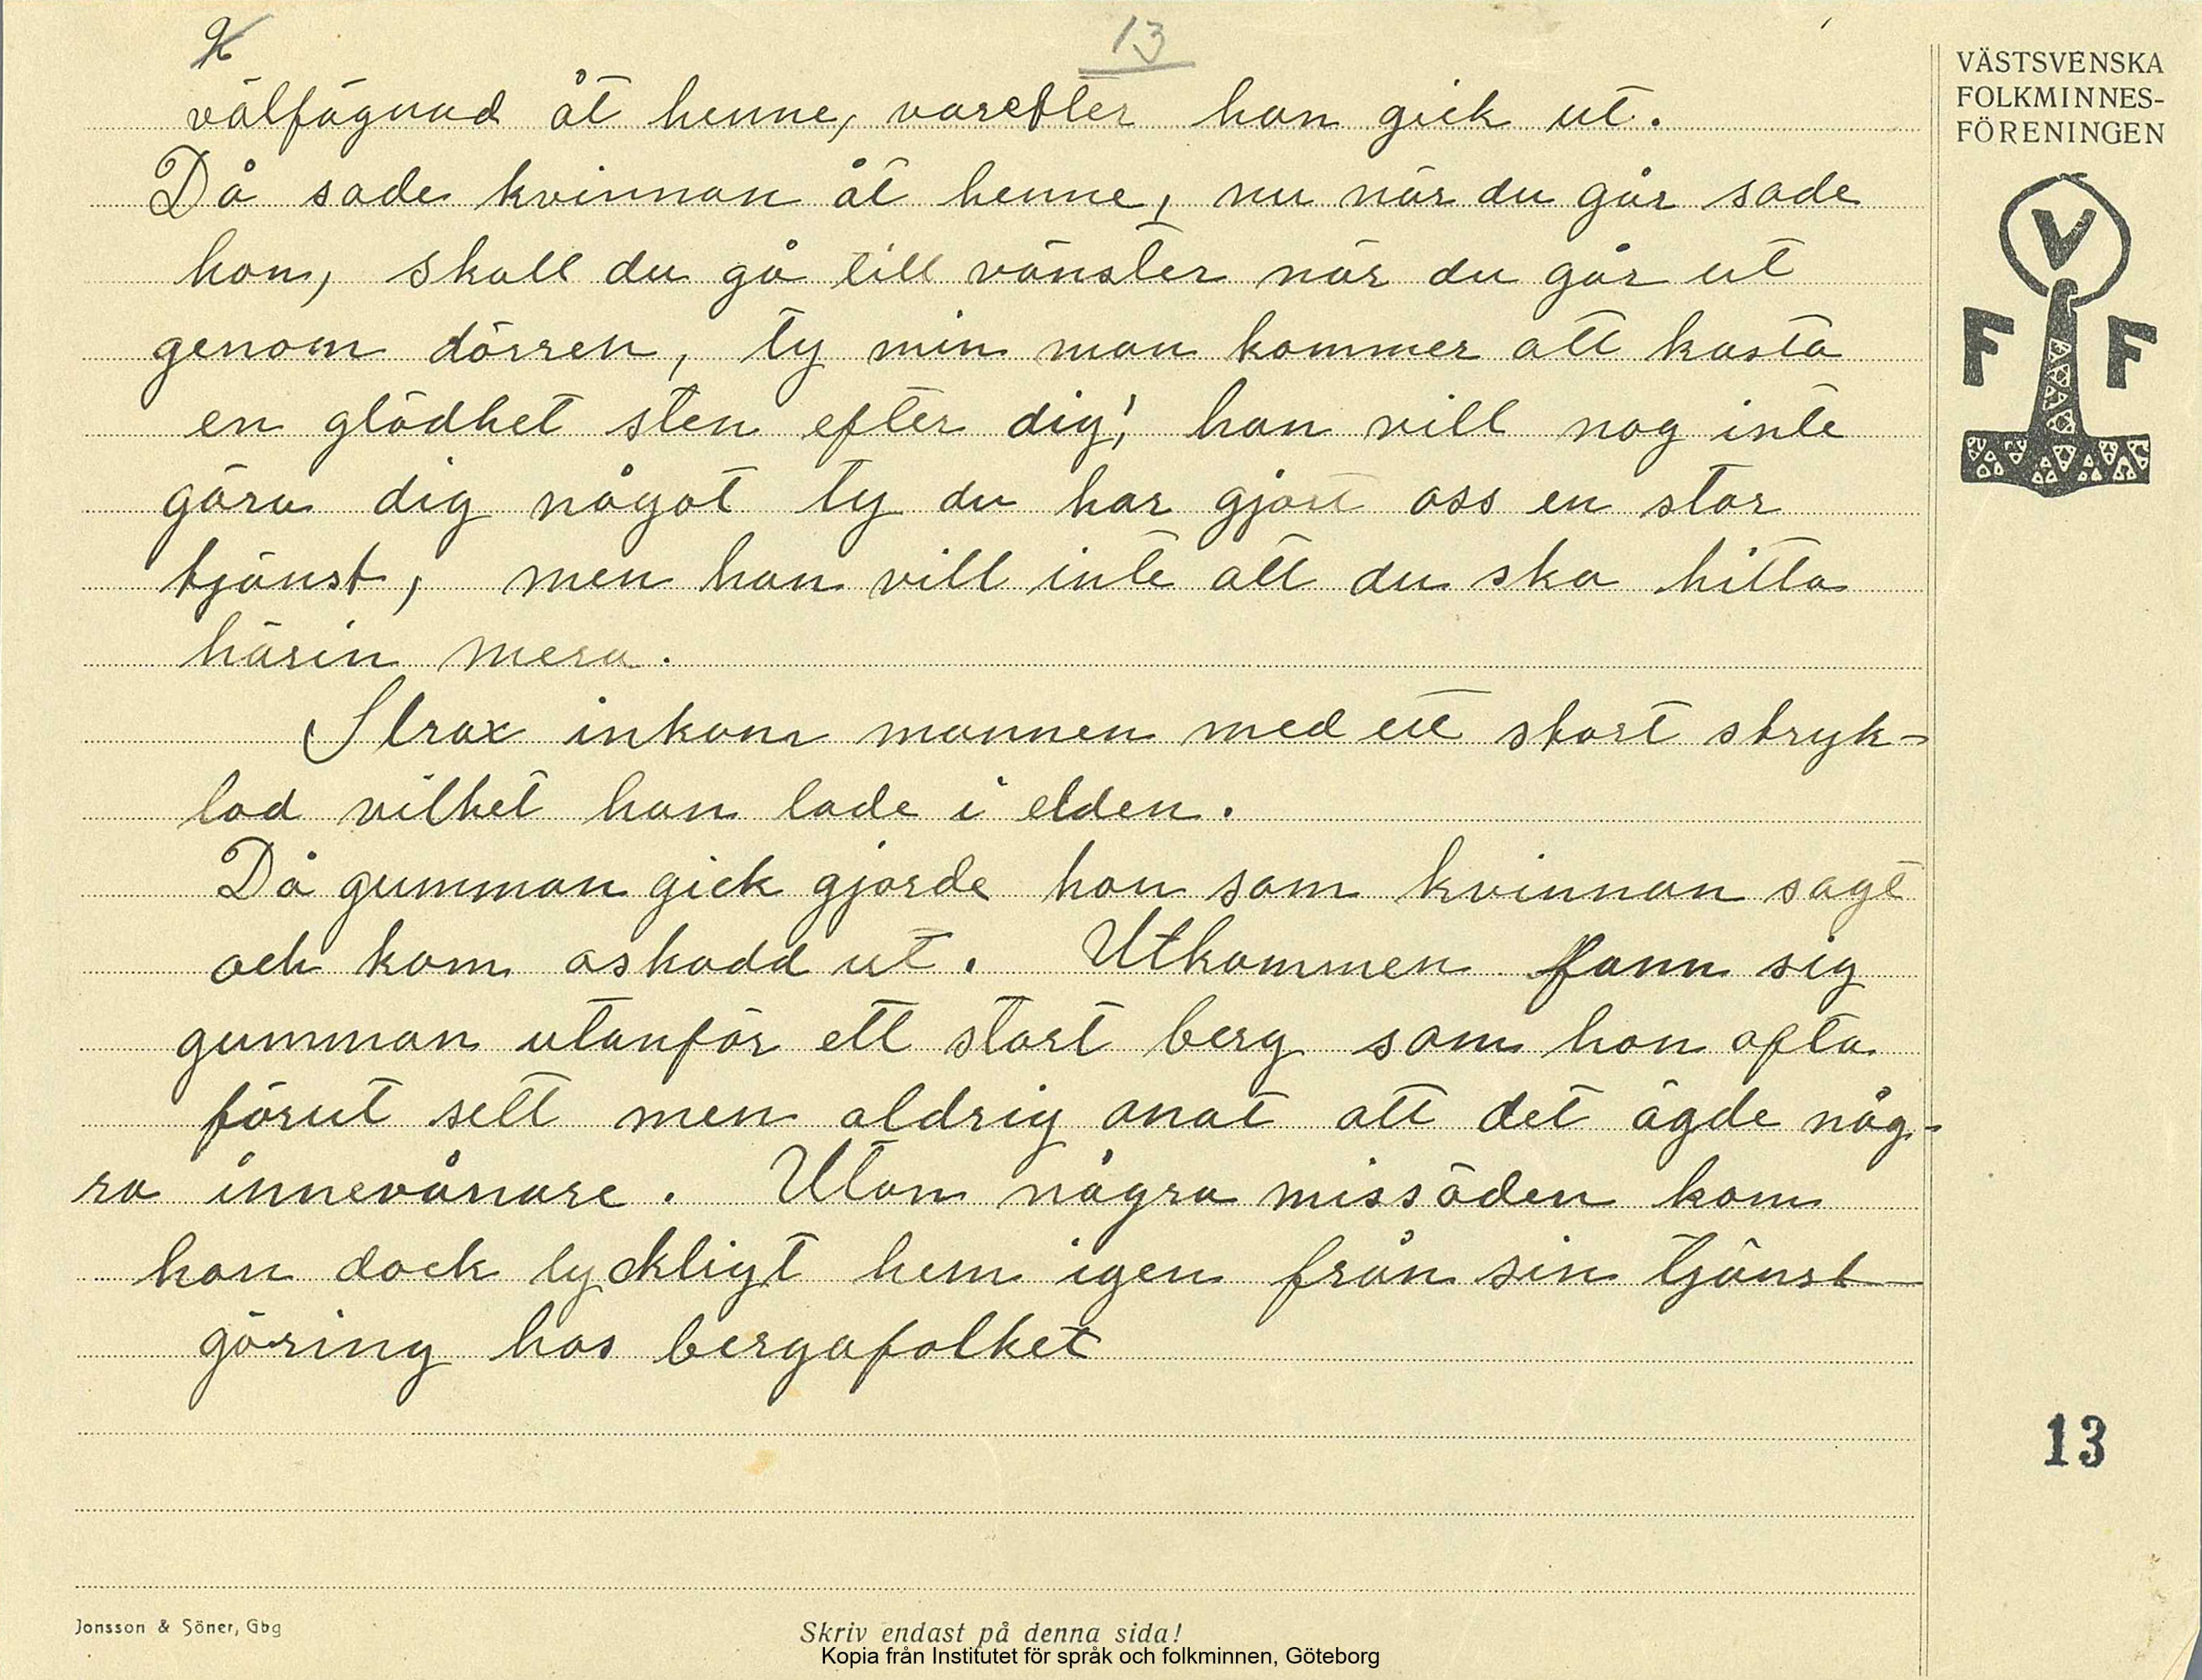 13
välfägnad åt henne, varefter han gick ut.
Då sade kvinnan åt henne, nu när du går sade
hon, skall du gå till vänster när du går ut
genom dörren, ty min man kommer att kasta
en glödhet sten efter dig! han vill nog inte
göra dig något ty du har gjort oss en stor
tjänst, men han vill inte att du ska hitta
härin mera.
Strax inkom mannen med ett stort stryk-
lod vilket han lade i elden.
Då gumman gick gjorde hon som kvinnan sagt
och kom oskadd ut. Utkommen fann sig
gumman utanför ett stort berg som hon ofta
förut sett men aldrig anat att det ägde någ-
ra innevånare. Utan några missöden kom
hon dock lyckligt hem igen från sin tjänst-
göring hos bergafolket
VÄSTSVENSKA
FOLKMINNES-
FÖRENINGEN
V
F F
13
Jonsson & Söner, Gbg
Skriv endast på denna sida!
Kopia från Institutet för språk och folkminnen, Göteborg